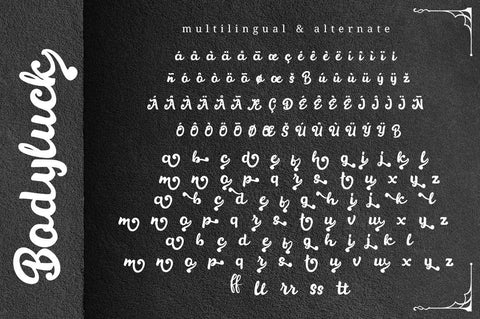 Bodyluck
multilingual & alternate
á à â ä å ã æ ç é ê è ë í î ì ï
ñ ó ô ò ö õ ø œ š B ú û ù ü ý ÿ ž
Á Â À Ä Å Ã Æ Ç Đ É Ê È Ë Í Î Ì Ï Ñ
Ó Ô Ò Ö Õ Ø Œ Š Ú Û Ù Ü Ý Ÿ B
a b c d e g h g i j k l
m n o p q r s t u v w x y z
a b c d e g h g i j k l
m n o p q r s t u v w x y z
a b c d e g h g i j k l
m n o p q r s t u v w x y z
ff ll rr ss tt